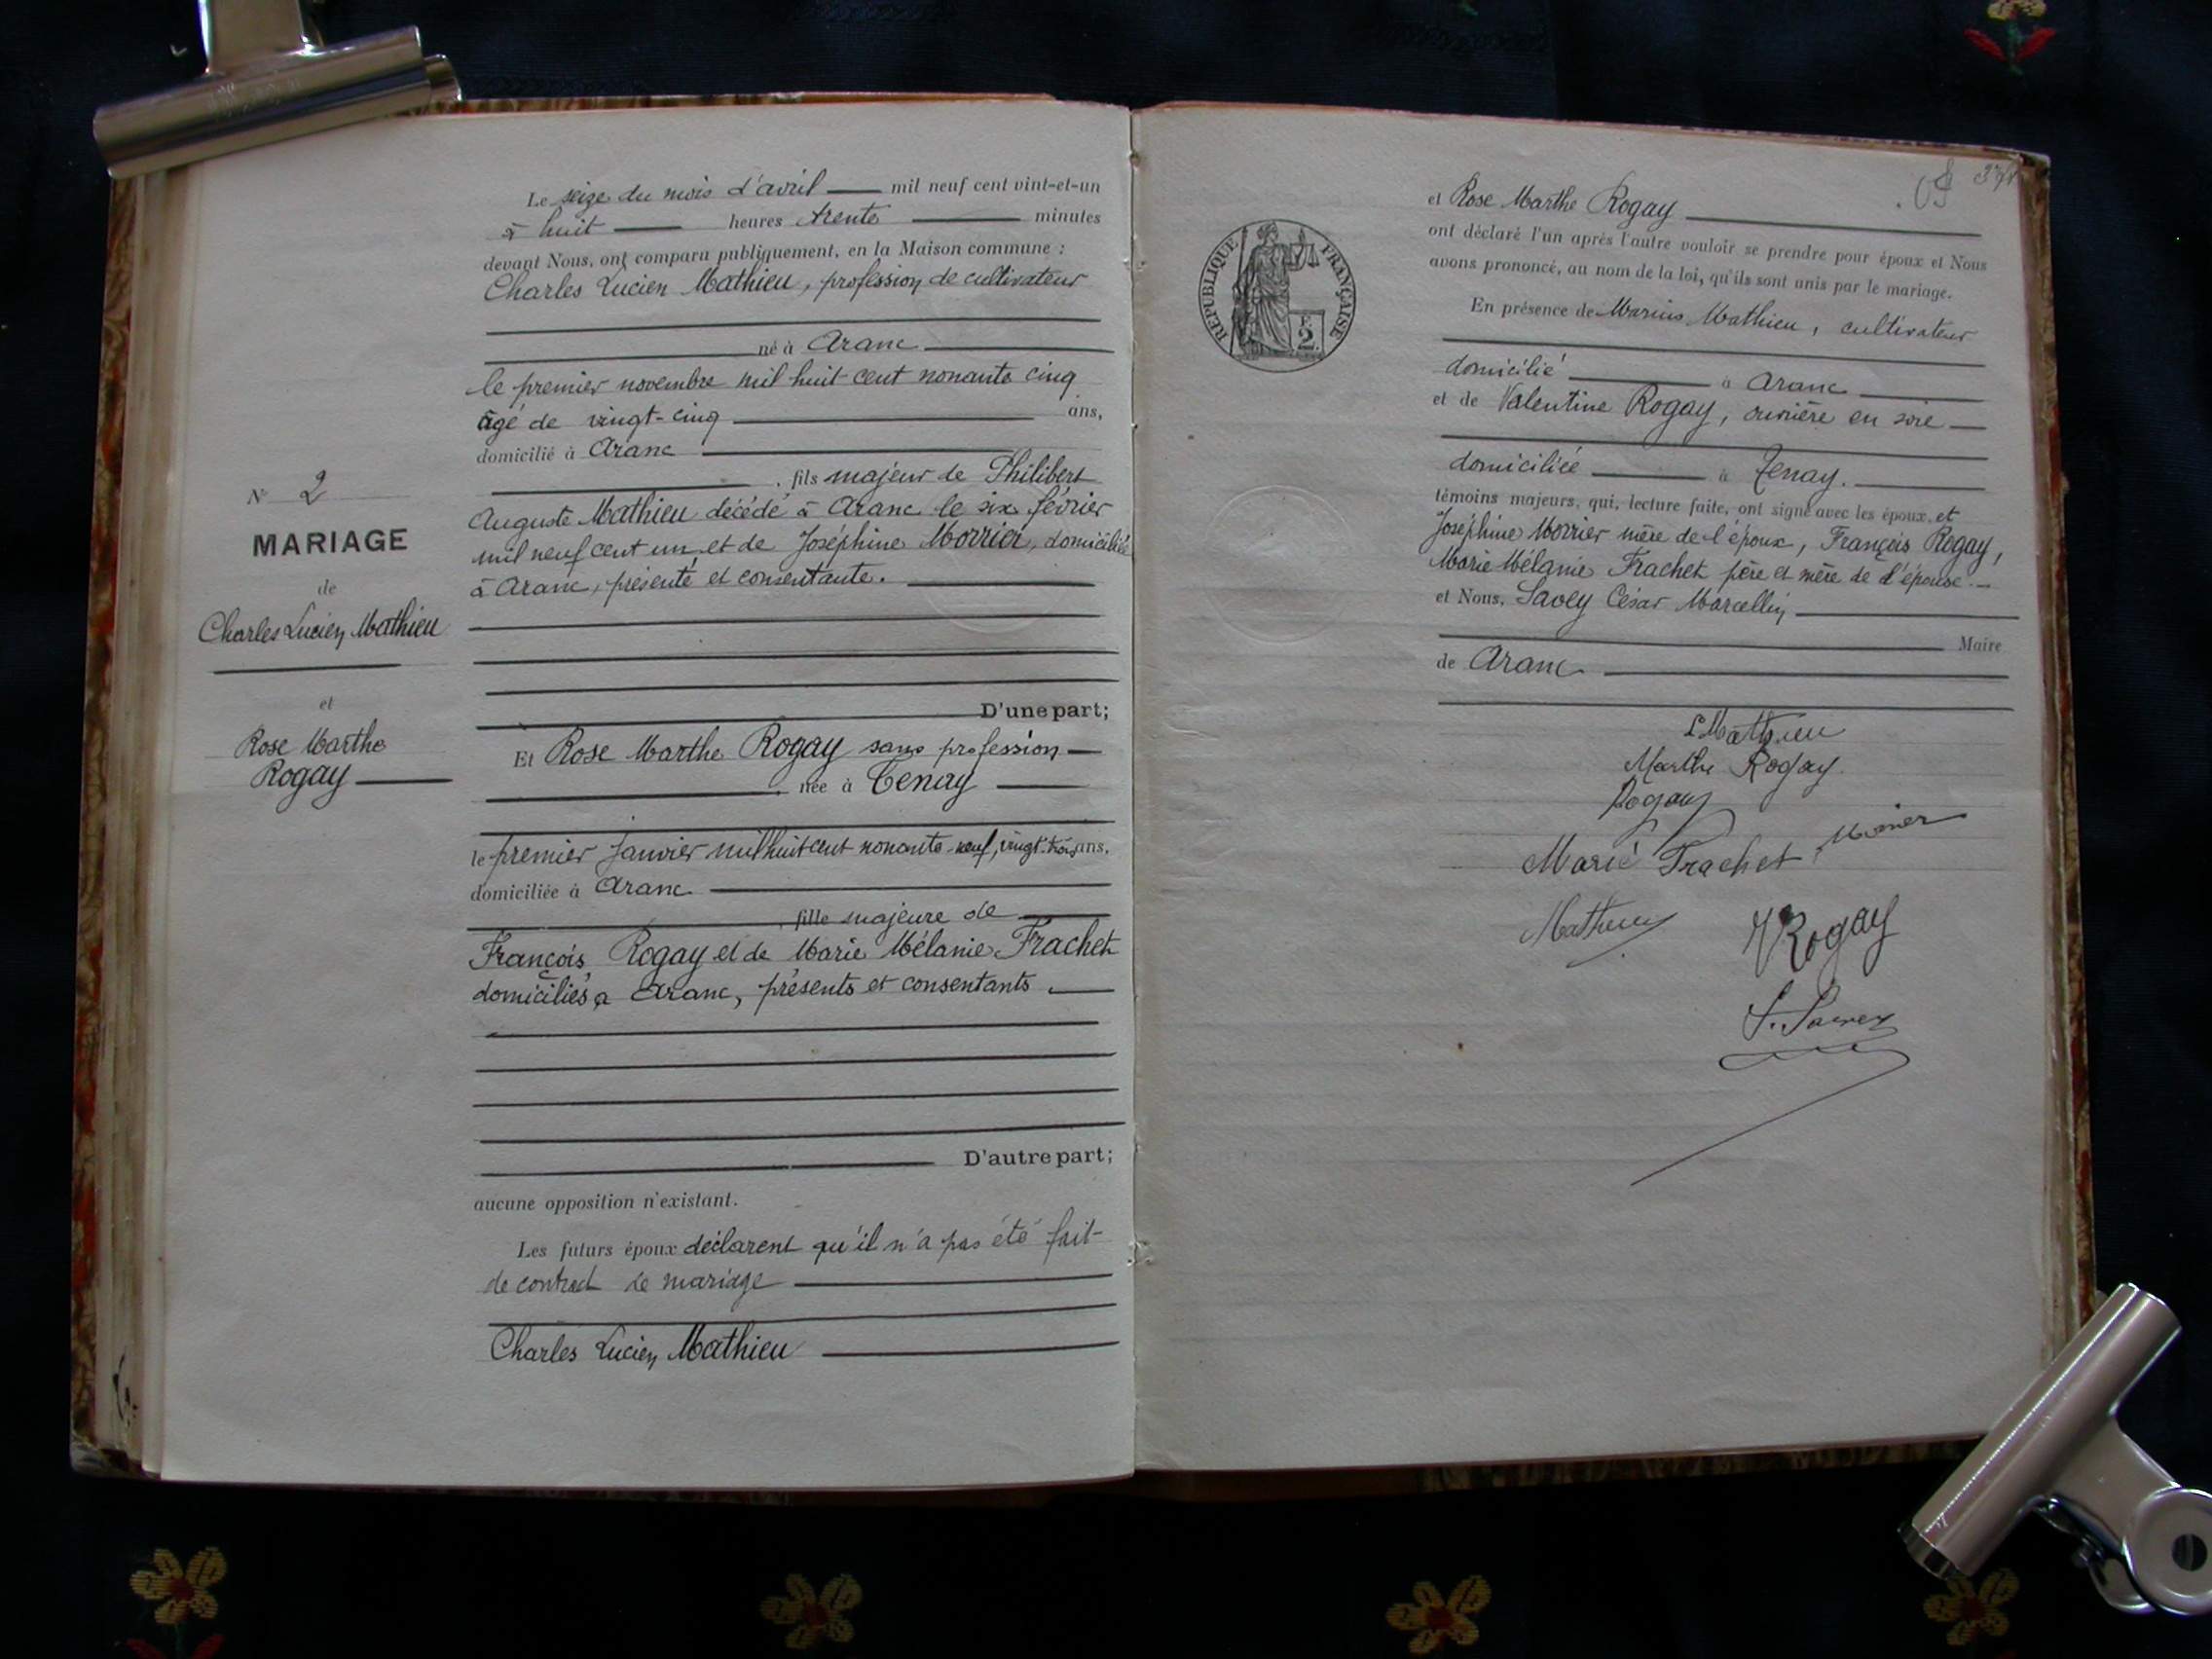 Le seize du mois d'avril mil neuf cent vint-et-un
à huit heures trente minutes
devant Nous, ont comparu publiquement, en la Maison commune :
Charles Lucien Mathieu, profession de cultivateur
né à Aranc
le premier novembre mil huit cent nonante cinq
âgé de vingt-cinq ans,
domicilié à Aranc
fils majeur de Philibert
Auguste Mathieu décédé à Aranc le six février
mil neuf cent un et de Joséphine Morrier, domiciliée
à Aranc, présente et consentante.
D'une part;
N° 2
MARIAGE
de
Charles Lucien Mathieu
et
Rose Marthe
Rogay
Et Rose Marthe Rogay sans profession
née à Tenay
le premier Janvier mil huit cent nonante-neuf, vingt-trois ans,
domiciliée à Aranc
fille majeure de
François Rogay et de Marie Mélanie Trachet
domiciliés à Aranc, présents et consentants.
D'autre part;
aucune opposition n'existant.
Les futurs époux déclarent qu'il n'a pas été fait
de contrat de mariage
Charles Lucien Mathieu
et Rose Marthe Rogay
ont déclaré l'un après l'autre vouloir se prendre pour époux et Nous
avons prononcé, au nom de la loi, qu'ils sont unis par le mariage.
En présence de Marius Mathieu, cultivateur
domicilié à Aranc
et de Valentine Rogay, ouvrière en soie
domiciliée à Tenay.
témoins majeurs, qui, lecture faite, ont signé avec les époux, et
Joséphine Morrier mère de l'époux, François Rogay,
Marie Mélanie Trachet père et mère de l'épouse.
et Nous, Savey César Marcellin
Maire
de Aranc
RÉPUBLIQUE FRANÇAISE
F.
2.
L Mathieu
Marthe Rogay.
Rogay
Marie Trachet
Mathieu
V Rogay